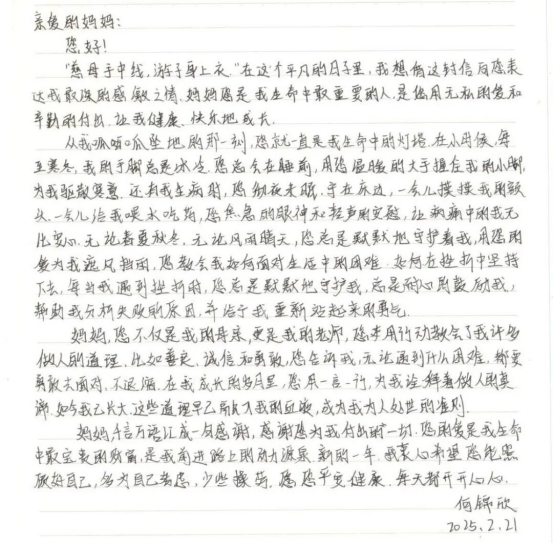 亲爱的妈妈：
您好！
“慈母手中线，游子身上衣。”在这个平凡的日子里，我想借这封信向您表
达我最深的感激之情。妈妈您是我生命中最重要的人，是您用无私的爱和
辛勤的付出，让我健康、快乐地成长。
从我呱呱坠地的那一刻，您就一直是我生命中的灯塔。在小时候，每
至寒冬，我的手脚总是冰冷，您总会在睡前，用您温暖的大手握住我的小脚，
为我驱散寒意。还有我生病时，您彻夜未眠，守在床边，一会儿摸摸我的额
头，一会儿给我喂水吃药，您焦急的眼神和轻声的安慰，让病痛中的我无
比安心。无论春夏秋冬，无论风雨晴天，您总是默默地守护着我，用您的
爱为我遮风挡雨。您教会我如何面对生活中的困难，如何在挫折中坚持
下去，每当我遇到挫折时，您总是默默地守护我，总是耐心的鼓励我，
帮助我分析失败的原因，并给予我重新站起来的勇气。
妈妈，您不仅是我的母亲，更是我的老师，您率用行动教会了我许多
做人的道理。比如善良、诚信和勇敢，您告诉我，无论遇到什么困难，都要
勇敢去面对，不退缩。在我成长的岁月里，您用一言一行，为我诠释着做人的真
谛。如今我已长大，这些道理早已融入我的血液，成为我为人处世的准则。
妈妈千言万语汇成一句感谢，感谢您为我付出的一切。您的爱是我生命
中最宝贵的财富，是我前进路上的动力源泉。新的一年，我衷心希望您能照
顾好自己，多为自己考虑，少些操劳。愿您平安健康，每天都开开心心。
何锦欣
2025.2.21